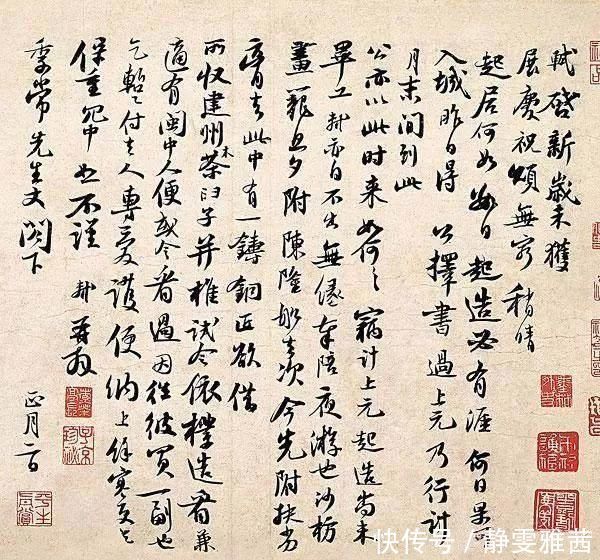 軾啓新歲未獲
展慶祝頌無窮稍晴
起居何如數日起造必有涯何日果可
入城昨日得公擇書過上元乃行計
月末間到此
公亦以此時來如何〻竊計上元起造尚未
畢工軾亦自不出無緣奉陪夜游也沙枋
畫籠旦夕附陳隆船去次今先附扶劣
膏去此中有一鑄銅匠欲借
所收建州木茶臼子并椎試令依樣造看兼
適有閩中人便或令看過因往彼買一副也
乞暫付去人專愛護便納上餘寒更乞
保重冗中恕不謹軾再拜
季常先生丈閣下
正月二日
快传号/静雯雅茜